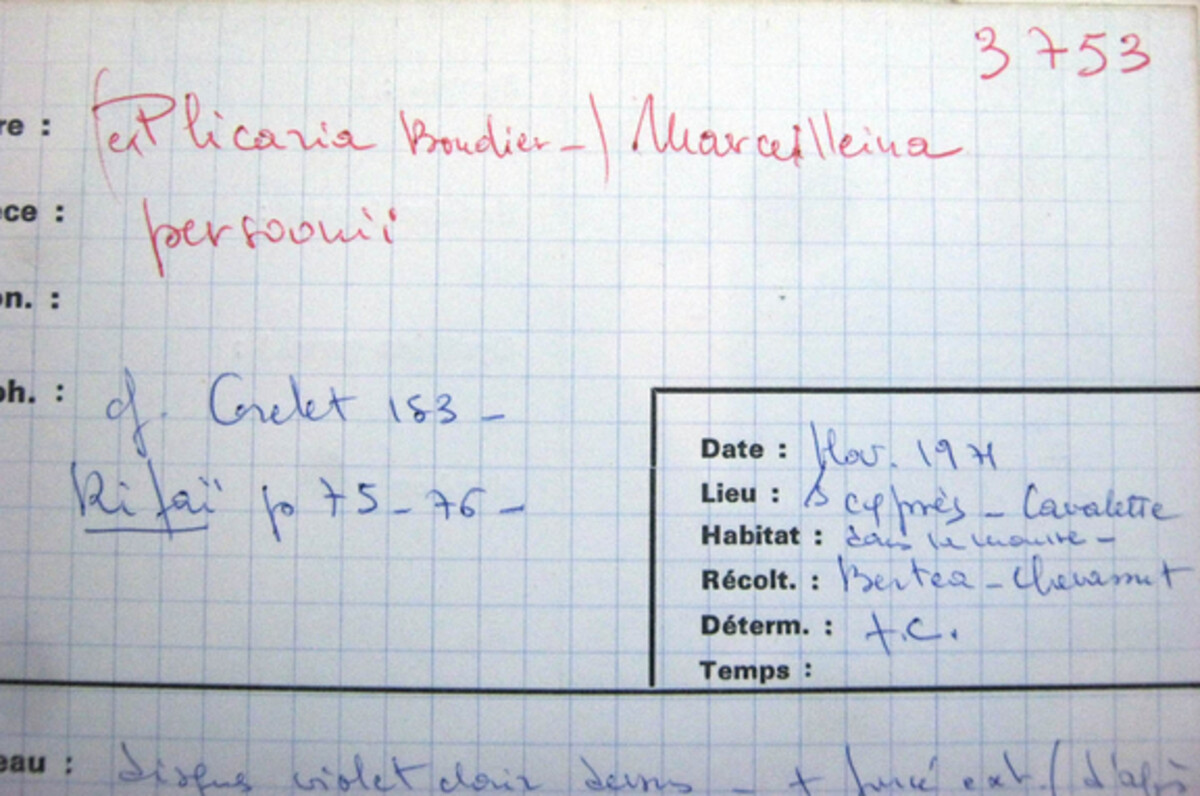 3753
re : (ex Plicaria Boudier -) Marcelleina
ce : persoonii
on. :
ph. : cf. Corclet 183 -
Rifaï p 75 - 76 -
Date : Nov. 1971
Lieu : S cyprès - Cavalette
Habitat : dans
Récolt. : Bertea - Chevassut
Déterm. : t.C.
Temps :
eau : disque violet clair dessus - + foncé ext. (d'après